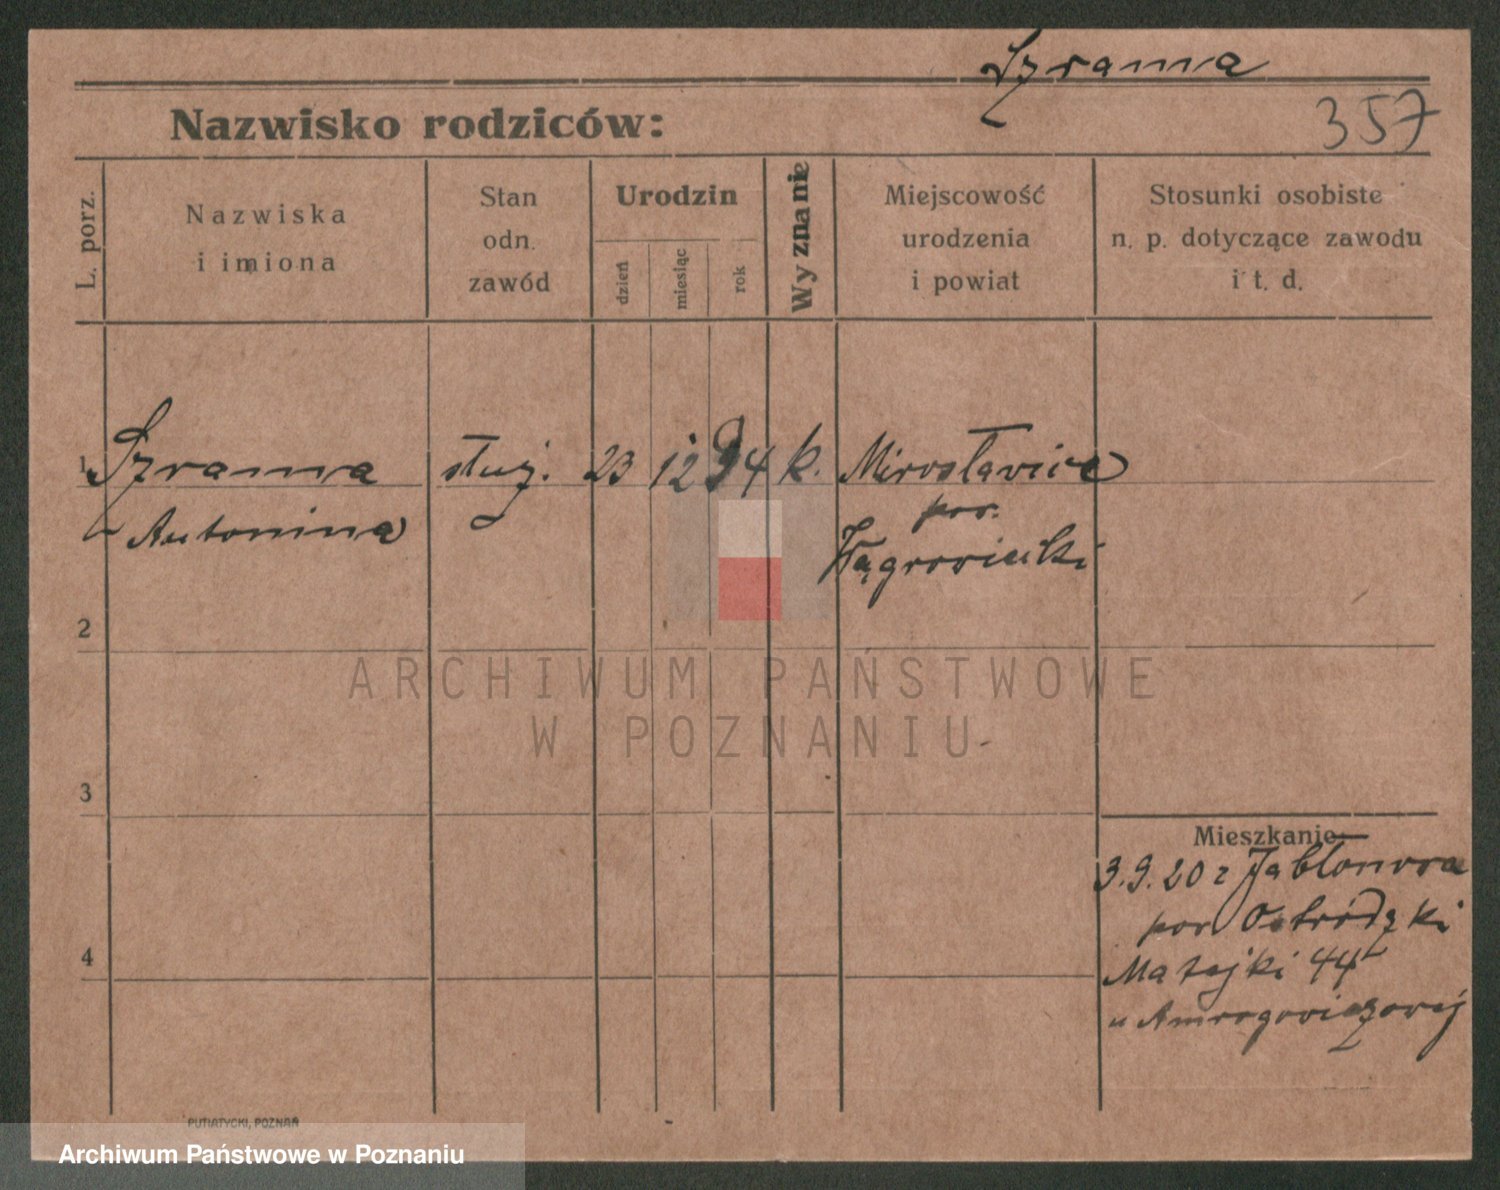 Szranna
357
Nazwisko rodziców:
L. porz.
Nazwiska
i imiona
Stan
odn.
zawód
Urodzin
dzień
miesiąc
rok
Wyznanie
Miejscowość
urodzenia
i powiat
Stosunki osobiste
n. p. dotyczące zawodu
i t. d.
1 Szranna służ. 23 12 94 k. Mirosławice
Antonina
pow.
Wągrowiecki
2
3
4
Mieszkanie
3.9.20 z Jabłonowa
pow Ostródzki
Matejki 44
u Amrogowiczowej
PUTIATYCKI, POZNAŃ
ARCHIWUM PAŃSTWOWE
W POZNANIU
Archiwum Państwowe w Poznaniu